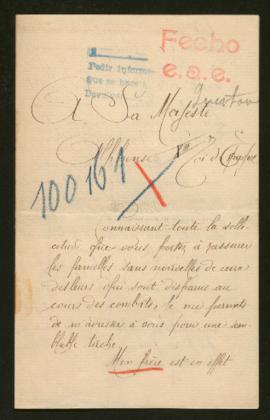 Fecho
e. a. e.
Pedir informe
que se hace
A Sa Majesté
Alphonse XIII Roi d'Espagne
100161
Connaissant toute la solli-
citude que vous portez à rassurer
les familles sans nouvelles de ceux
des leurs qui sont disparus au
cours des combats, je me permets
de m'adresser à vous pour une sem-
blable tâche.
Mon frère est en effet